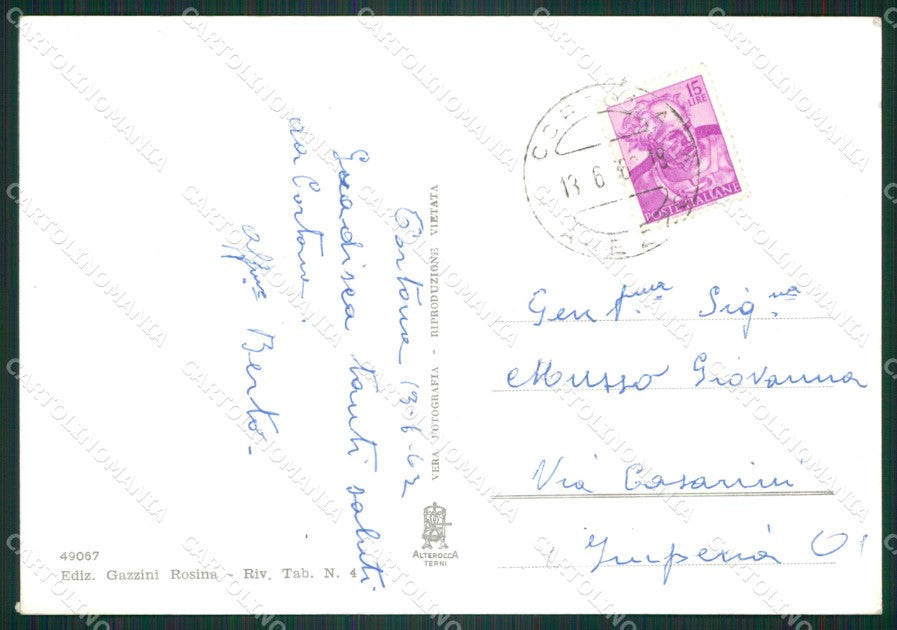 Cortona 13-6-62
Gradisca tanti saluti
da Cortona.
aff.mo Berto-
VERA FOTOGRAFIA - RIPRODUZIONE VIETATA
15
LIRE
POSTE ITALIANE
13 6 19
Gent.ma Sig.na
Musso Giovanna
Via Casarini
Imperia
ALTEROCCA
TERNI
49067
Ediz. Gazzini Rosina - Riv. Tab. N. 4
CARTOLINOMANIA